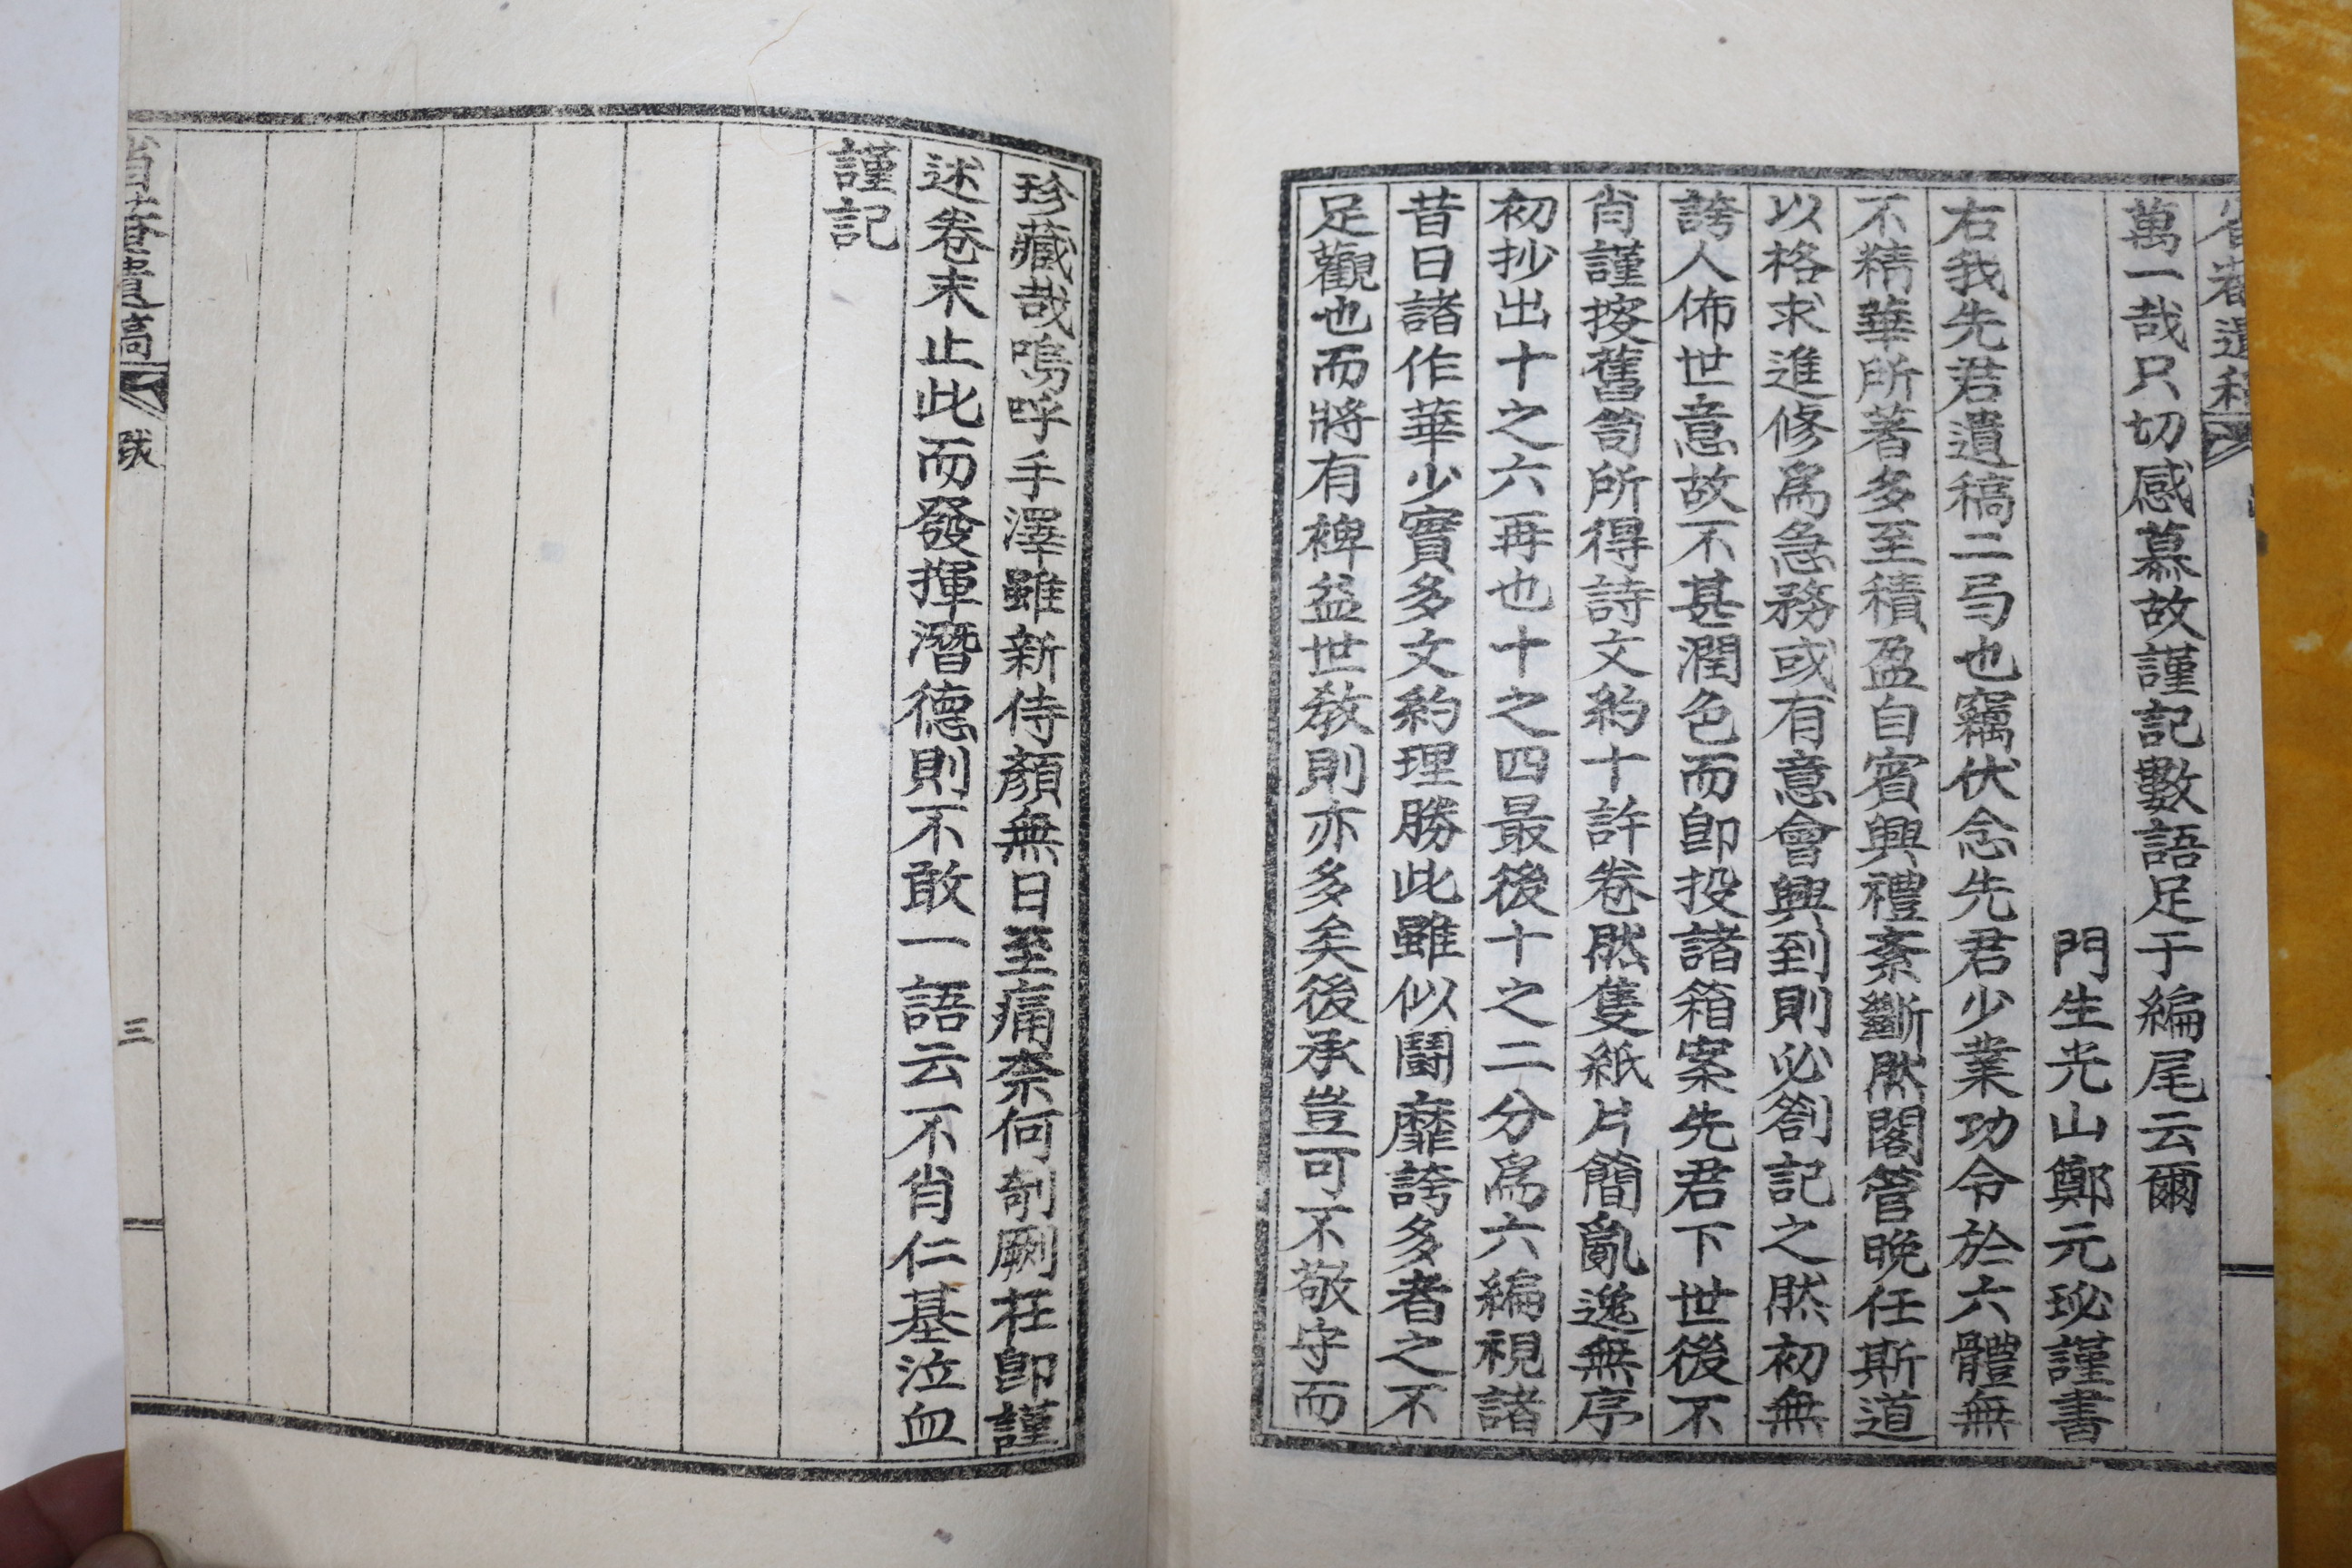 萬一哉只切感慕故謹記數語足于編尾云爾
門生光山鄭元珌謹書
右我先君遺稿二弓也竊伏念先君少業功令於六體無
不精華所著多至積盈自賓興禮紊斷然閣管晩任斯道
以格求進修爲急務或有意會興到則必劄記之然初無
誇人佈世意故不甚潤色而卽投諸箱案先君下世後不
肖謹按舊笥所得詩文約十許卷然隻紙片簡亂逸無序
初抄出十之六再也十之四最後十之二分爲六編視諸
昔日諸作華少實多文約理勝此雖似鬪靡誇多者之不
足觀也而將有裨益世敎則亦多矣後承豈可不敬守而
珍藏哉嗚呼手澤雖新侍顔無日至痛柰何剞劂在卽謹
述卷末止此而發揮潛德則不敢一語云不肖仁基泣血
謹記
遺稿
跋
三